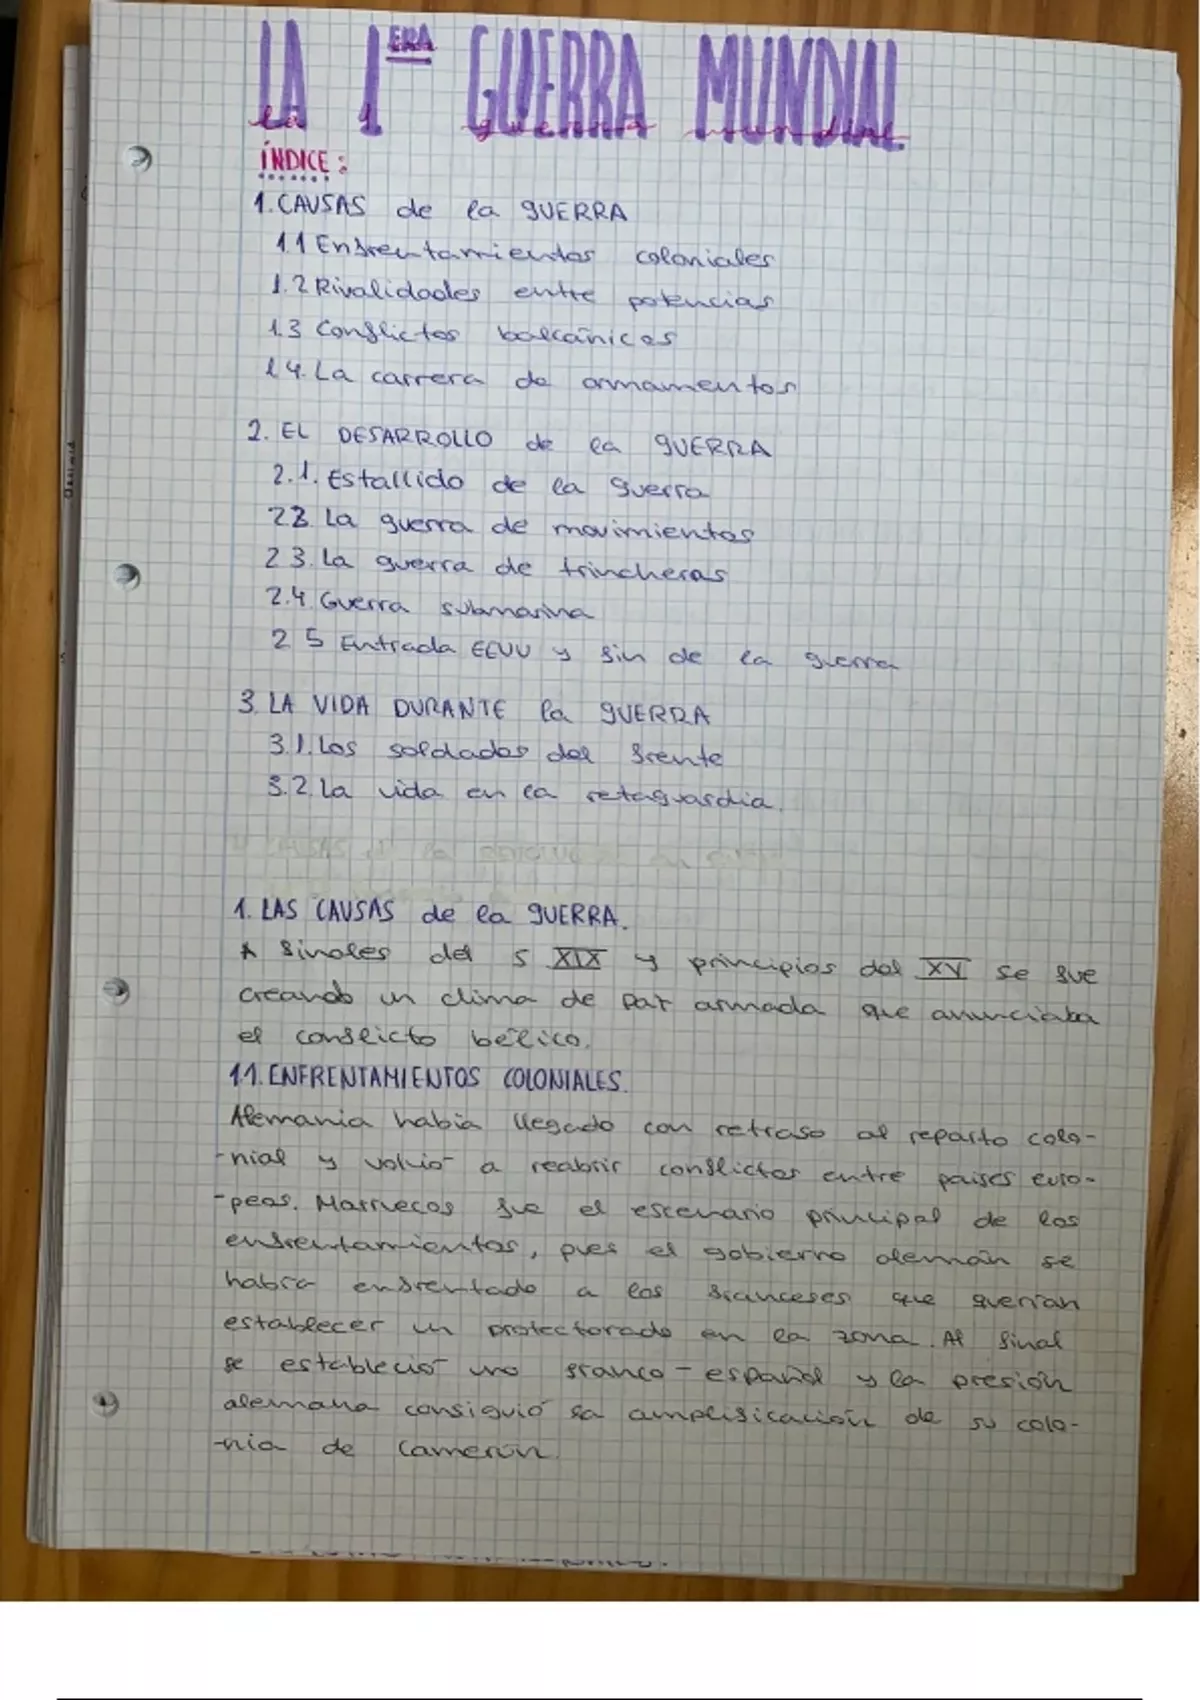 LA 1ERA GUERRA MUNDIAL
la 1 guerra mundial
ÍNDICE:
1. CAUSAS de la GUERRA
1.1 Enfrentamientos coloniales
1.2 Rivalidades entre potencias
1.3 Conflictos balcánicos
1.4. La carrera de armamentos
2. EL DESARROLLO de la GUERRA
2.1. Estallido de la guerra
2.2. La guerra de movimientos
2.3. La guerra de trincheras
2.4. Guerra submarina
2.5 Entrada EEUU y fin de la guerra
3. LA VIDA DURANTE la GUERRA
3.1. Los soldados del frente
3.2. La vida en la retaguardia.
1. LAS CAUSAS de la GUERRA.
A finales del s XIX y principios del XV se fue
creando un clima de paz armada que anunciaba
el conflicto bélico.
1.1. ENFRENTAMIENTOS COLONIALES.
Alemania había llegado con retraso al reparto colo-
-nial y volvió a reabrir conflictos entre países euro-
-peos. Marruecos fue el escenario principal de los
enfrentamientos, pues el gobierno alemán se
había enfrentado a los franceses que querían
establecer un protectorado en la zona. Al final
se estableció uno franco-español y la presión
alemana consiguió la amplificación de su colo-
-nia de Camerún.